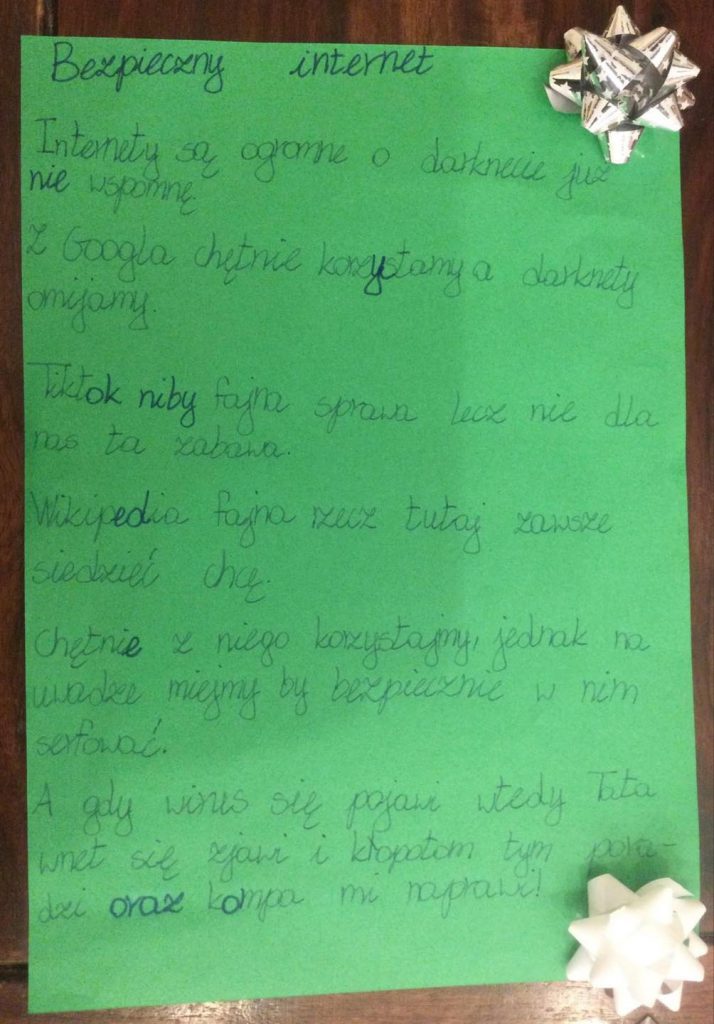 Bezpieczny internet
Internety są ogromne o darknecie już
nie wspomnę.
Z Googla chętnie korzystamy a darknety
omijamy.
Tiktok niby fajna sprawa lecz nie dla
nas ta zabawa.
Wikipedia fajna rzecz tutaj zawsze
siedzieć chcę.
Chętnie z niego korzystajmy, jednak na
uwadze miejmy by bezpiecznie w nim
serfować.
A gdy wirus się pojawi wtedy Tata
wnet się zjawi i kłopotom tym pora-
dzi oraz kompa mi naprawi!